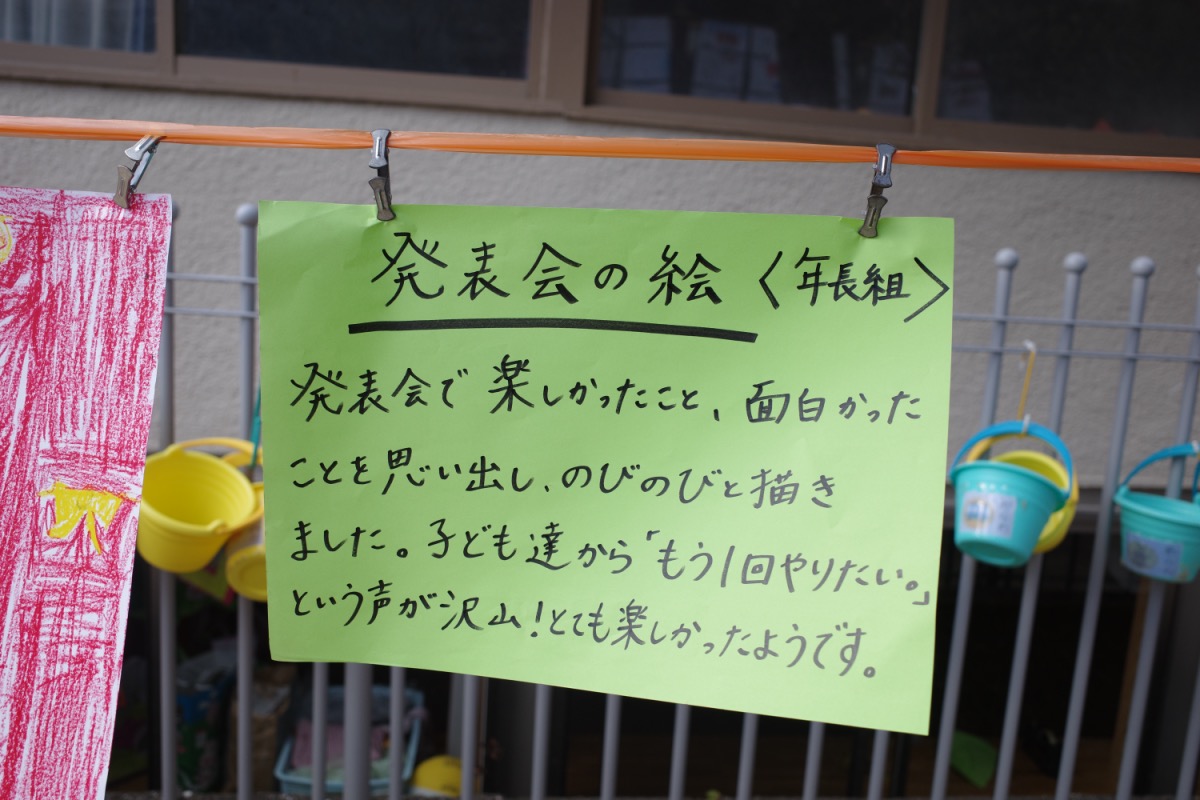 発表会の絵〈年長組〉
発表会で楽しかったこと、面白かった
ことを思い出し、のびのびと描き
ました。子ども達から「もう1回やりたい。」
という声が沢山!とても楽しかったようです。